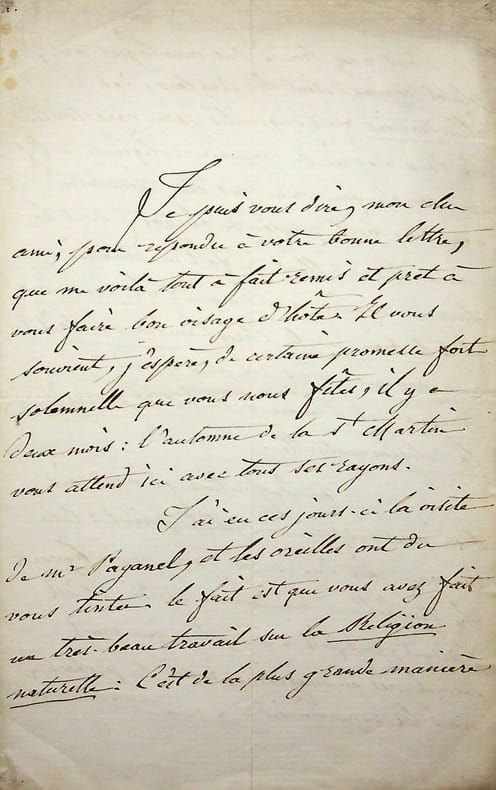 Je puis vous dire, mon cher
ami, pour répondre à votre bonne lettre,
que me voilà tout à fait remis et prêt à
vous faire bon visage d'hôte. Il vous
souvient, j'espère, de certaine promesse fort
solemnelle que vous nous fîtes, il y a
deux mois : l'automne de la St Martin
vous attend ici avec tous ses rayons.
J'ai eu ces jours-ci la visite
de Mr Paganel, et les oreilles ont du
vous tinter le fait est que vous avez fait
un très-beau travail sur la Religion
naturelle : C'est de la plus grande manière